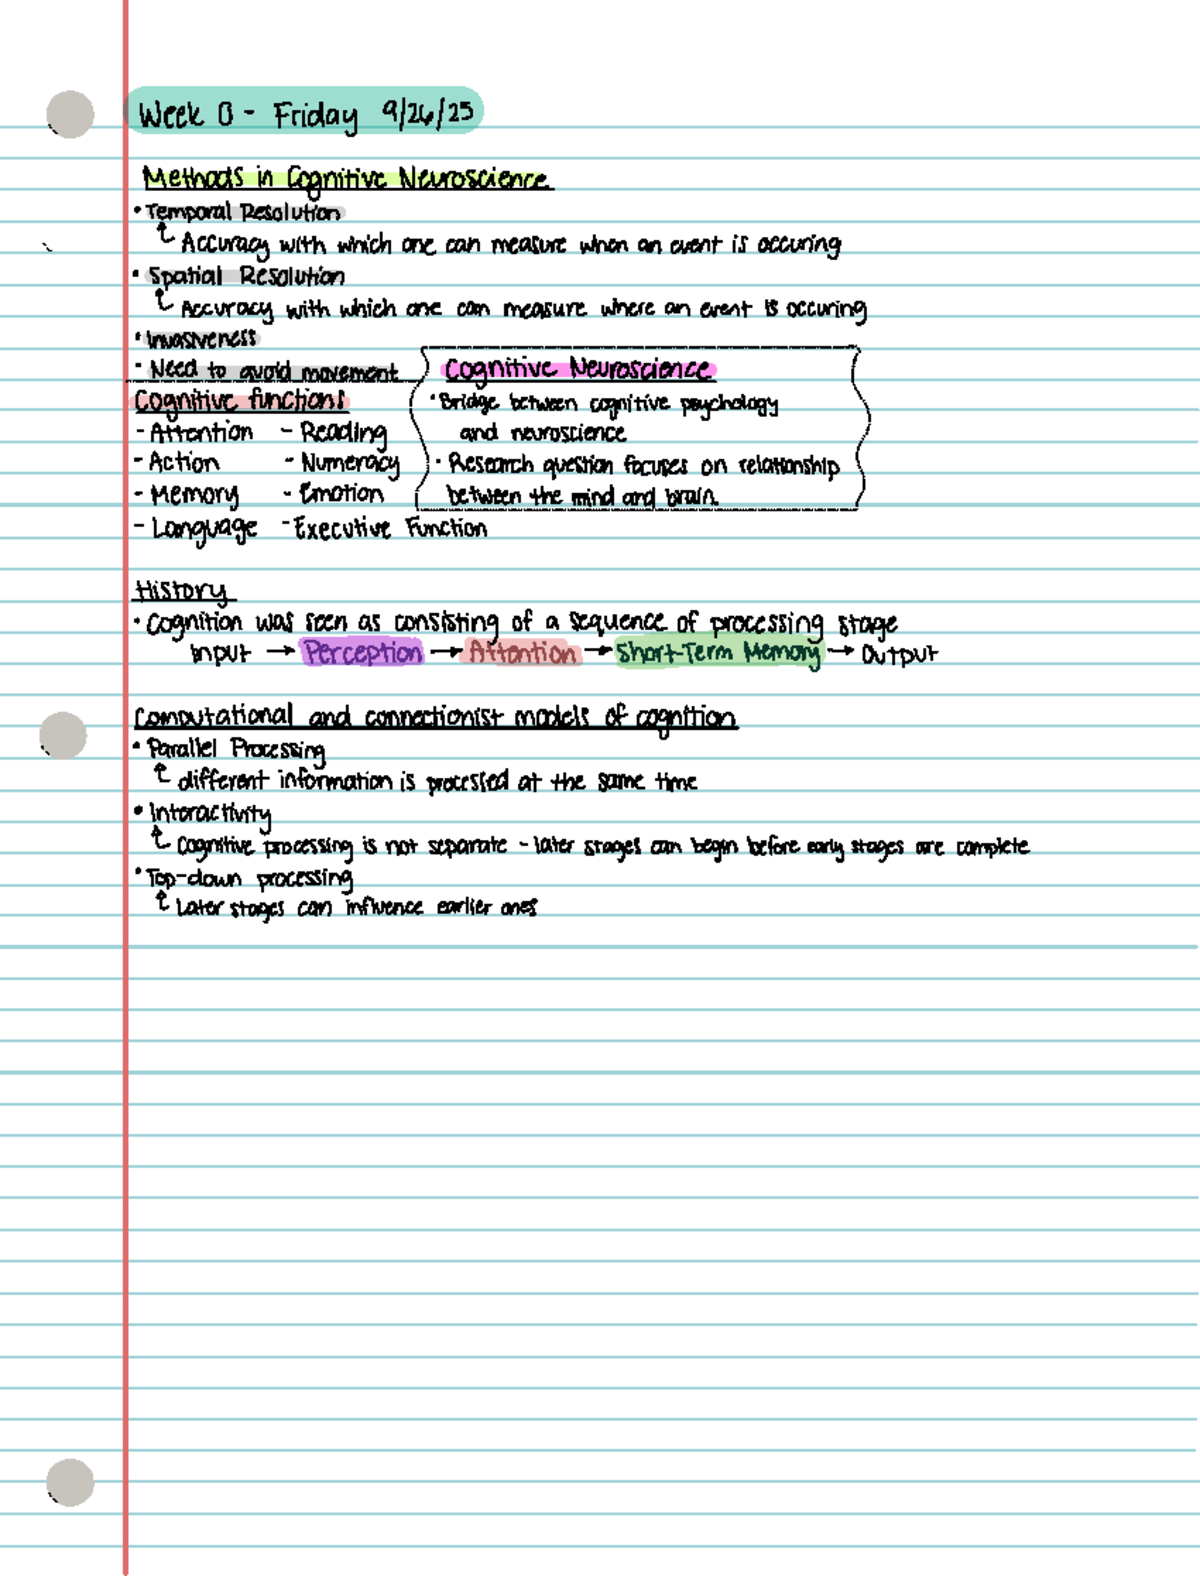 Week 0 - Friday 9/26/25
Methods in Cognitive Neuroscience
• Temporal Resolution
Accuracy with which one can measure when an event is occuring
• Spatial Resolution
Accuracy with which one can measure where an event is occuring
• Invasiveness
• Need to avoid movement
Cognitive functions
- Attention - Reading
- Action - Numeracy
- Memory - Emotion
- Language - Executive Function
Cognitive Neuroscience
• Bridge between cognitive psychology
and neuroscience
• Research question focuses on relationship
between the mind and brain.
History
• Cognition was seen as consisting of a sequence of processing stage
Input → Perception → Attention → Short-Term Memory → Output
Computational and connectionist models of cognition
• Parallel Processing
different information is processed at the same time
• Interactivity
Cognitive processing is not separate - later stages can begin before early stages are complete
• Top-down processing
Later stages can influence earlier ones